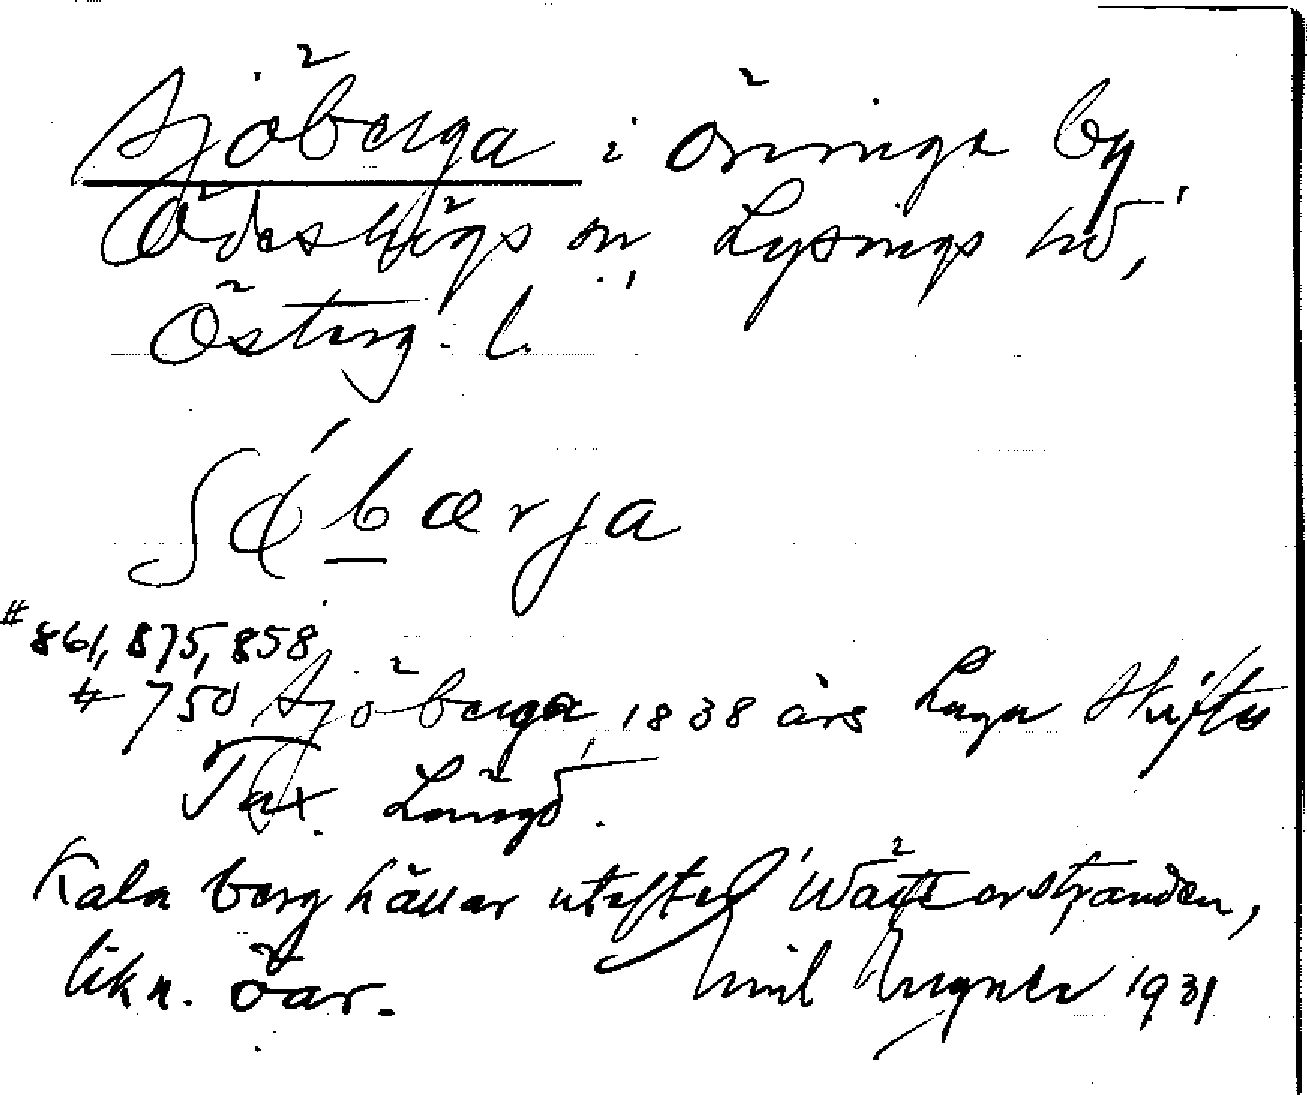 Sjöberga i Öninge by
Ödeshögs sn Lysings hd,
Österg. l.
Sǿbærja
# 861, 875, 858,
# 750 Sjöberga, 1838 års Laga Skiftes
Tax. Längd.
Kala berghällar utefter Wätterstranden,
likn. öar. Emil 1931